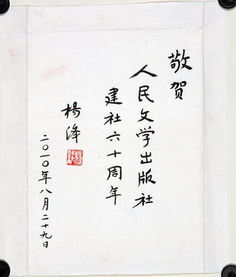 敬贺
人民文学出版社
建社六十周年
杨泽
二〇一〇年八月二十九日